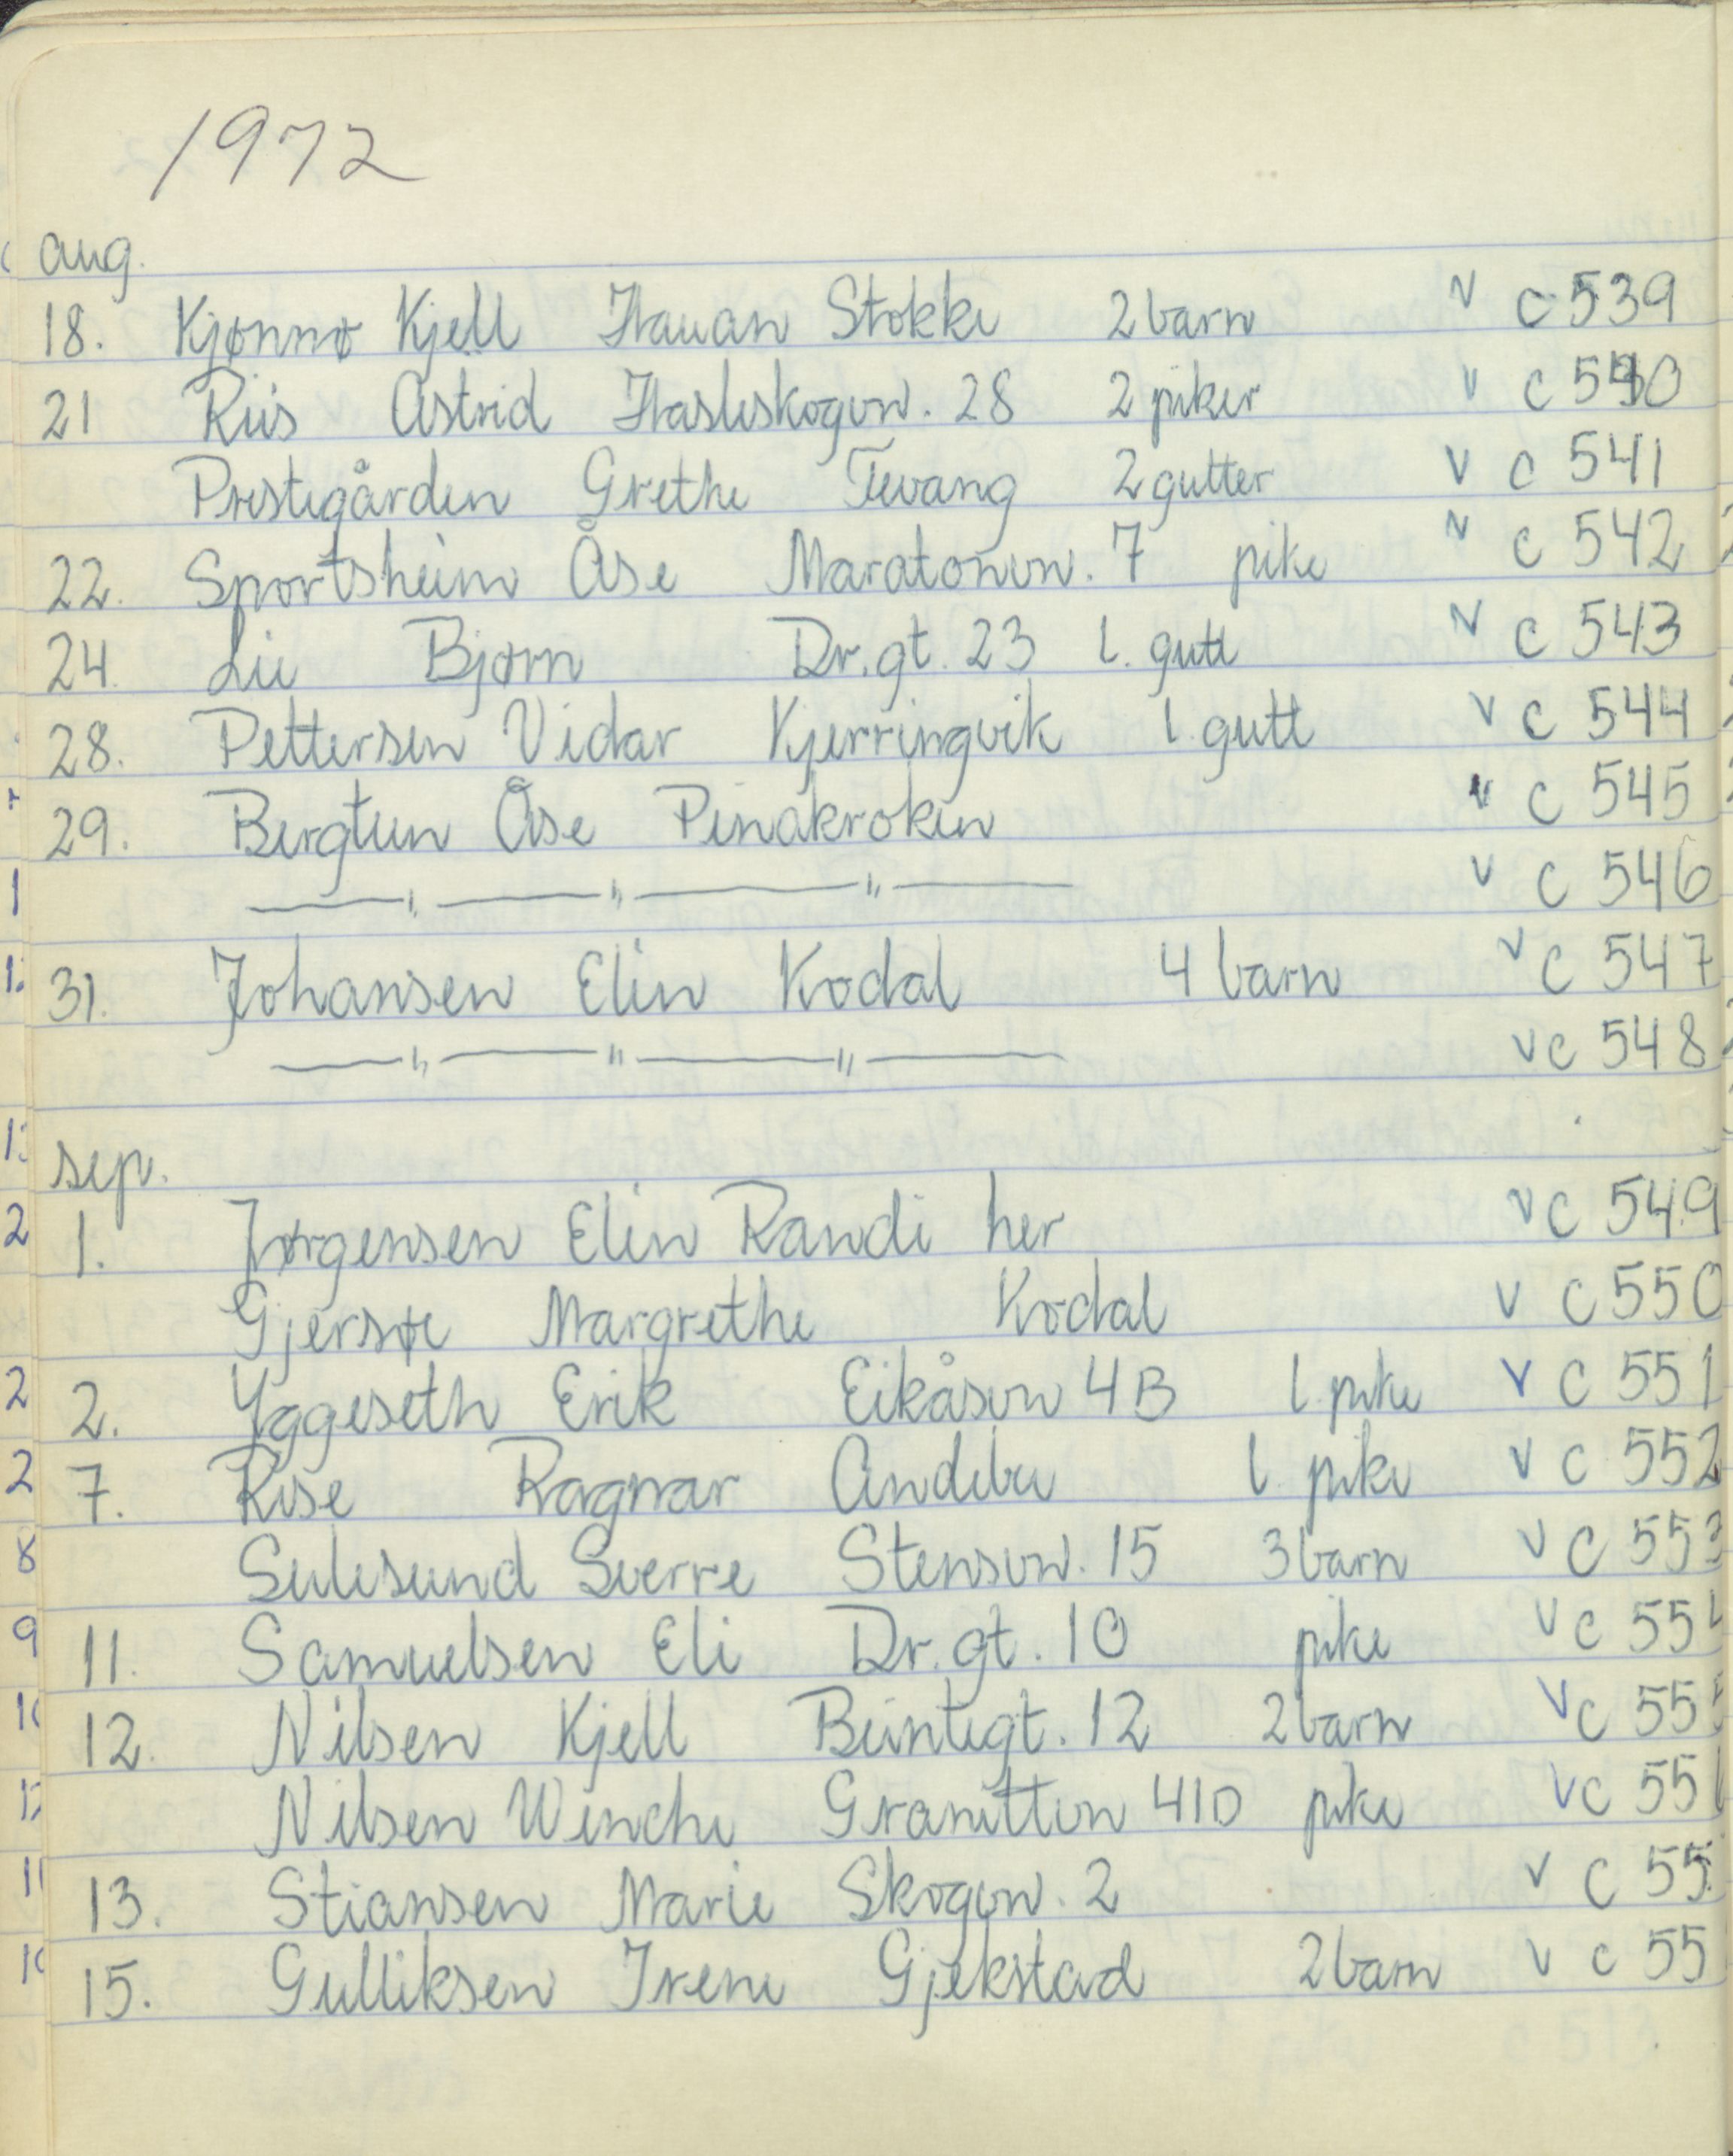 1972
aug.
18. Kjønnø Kjell Hauan Stokke 2 barn v c 539
21 Riis Astrid Hasleskogvn. 28 2 piker v c 540
Prestegården Grethe Tevang 2 gutter v c 541
22. Sportsheim Åse Maratonvn. 7 pike v c 542
24. Lie Bjørn Dr.gt. 23 1. gutt v c 543
28. Pettersen Vidar Kjerringvik 1. gutt v c 544
29. Bergtun Åse Penakroken v c 545
—— " —— " —— " —— v c 546
31. Johansen Elin Kodal 4 barn v c 547
—— " —— " —— " —— v c 548
sep.
1. Jørgensen Elin Randi her v c 549
Gjersøe Margrethe Kodal v c 550
2. Yggeseth Erik Eikåsvn 4B 1 pike v c 551
7. Rise Ragnar Andebu 1. pike v c 552
Sulesund Sverre Stensvn. 15 3 barn v c 553
11. Samuelsen Eli Dr.gt. 10 pike v c 55
12. Nilsen Kjell Bentegt. 12 2 barn v c 55
Nilsen Wenche Granittvn 41D pike v c 55
13. Stiansen Marie Skogvn. 2 v c 55
15. Gulliksen Irene Gjekstad 2 barn v c 55